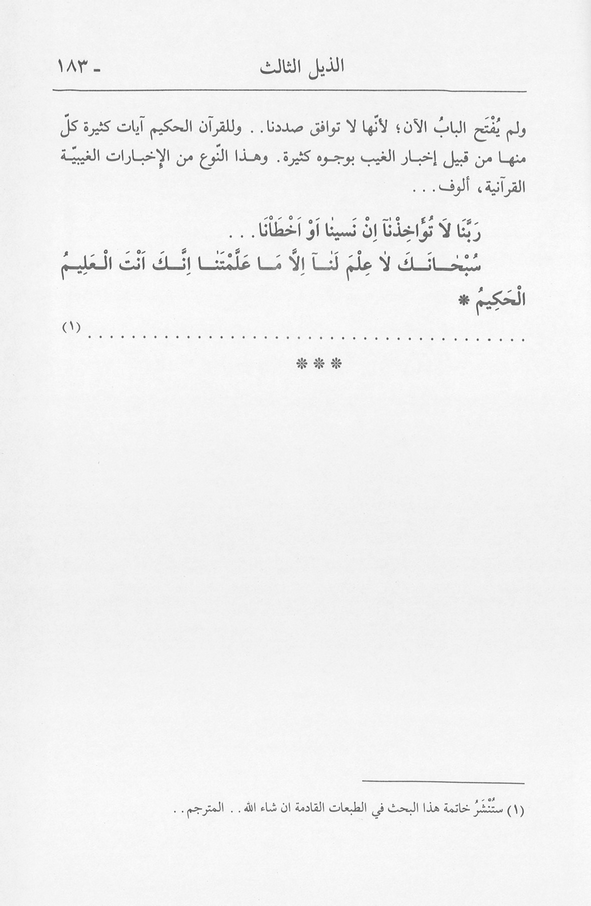 الذيل الثالث - ١٨٣
ولم يُفْتَح البابُ الآن؛ لأنّها لا توافق صددنا.. وللقرآن الحكيم آيات كثيرة كلّ
منهـا من قبيل إخبـار الغيب بوجـوه كثيرة. وهـذا النّوع من الإخبـارات الغيبيّـة
القرآنية، ألوف...
رَبَّنَا لَا تُؤَاخِذْنَٓا اِنْ نَسينٰا اَوْ اَخْطَاْنَا...
سُبْحٰـانَـكَ لاٰ عِلْمَ لَنٰـآ اِلاَّ مَـا عَلَّمْتَنٰـا اِنَّـكَ اَنْتَ الْعَلِيمُ
الْحَكِيمُ *
....................................... (١)
* * *
(١) ستُنْشَرُ خاتمة هذا البحث في الطبعات القادمة ان شاء الله.. المترجم..